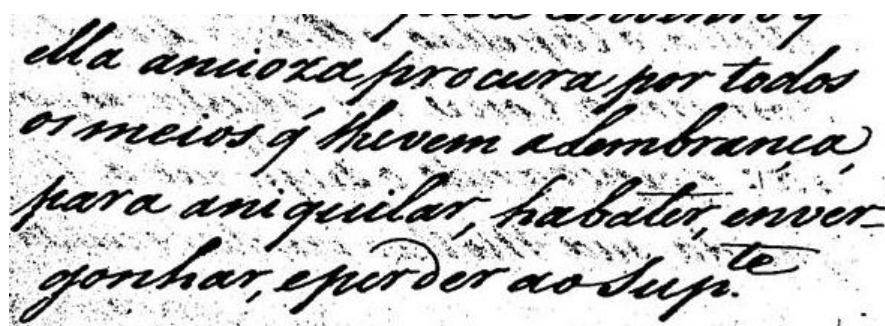 ella ancioza procura por todos
os meios q̃ lhevem a Lembrança,
para aniquilar, habater, enver-
gonhar, eperder ao Sup.te